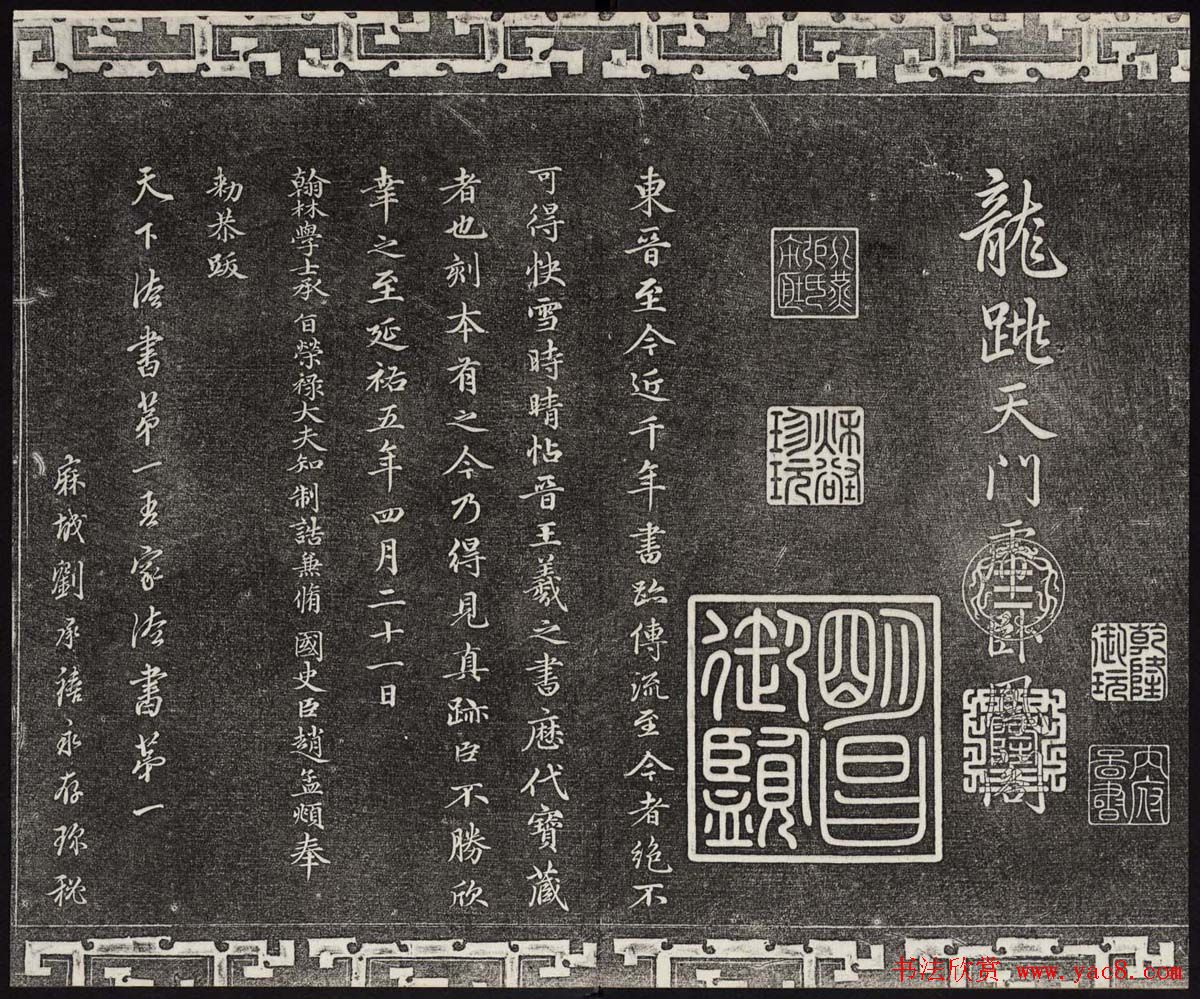 乾隆御玩
龍跳天門虎卧鳳閣
秋壑珍玩
明昌御覽
東晉至今近千年書跡傳流至今者絶不
可得快雪時晴帖晉王羲之書歷代寶藏
者也刻本有之今乃得見真跡臣不勝欣
幸之至延祐五年四月二十一日
翰林學士承旨榮祿大夫知制誥兼脩國史臣趙孟頫奉
勅恭跋
天下法書第一吾家法書第一
麻城劉承禧永存珎秘
书法欣赏 www.yac8.com